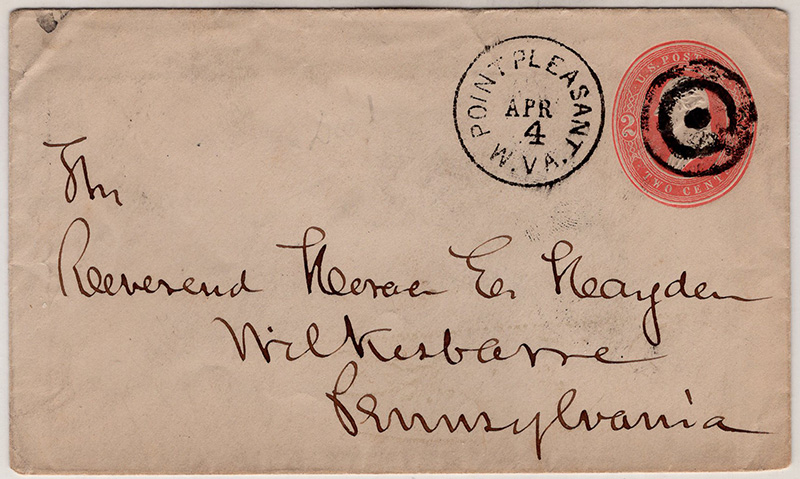 POINT PLEASANT.
APR
4
W. VA.
U.S. POST
2
TWO CENT
The
Reverend Horace E. Hayden
Wilkesbarre
Pennsylvania